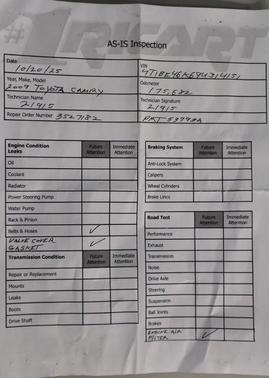 #1
AS-IS Inspection
Date
10/20/25
VIN
4T1BE46K69U314151
Year, Make, Model
2009 TOYOTA CAMRY
Odometer
175,682
Technician Name
21915
Technician Signature
21915
Repair Order Number 3527182
Engine Condition Leaks Future Attention Immediate Attention
Oil
Coolant
Radiator
Power Steering Pump
Water Pump
Rack & Pinion
Belts & Hoses ✓
VALVE COVER GASKET ✓
Transmission Condition Future Attention Immediate Attention
Repair or Replacement
Mounts
Leaks
Boots
Drive Shaft
Braking System Future Attention Immediate Attention
Anti-Lock System
Calipers
Wheel Cylinders
Brake Lines
Road Test Future Attention Immediate Attention
Performance
Exhaust
Transmission
Noise
Drive Axle
Steering
Suspension
Ball Joints
Brakes
ENGINE AIR FILTER ✓